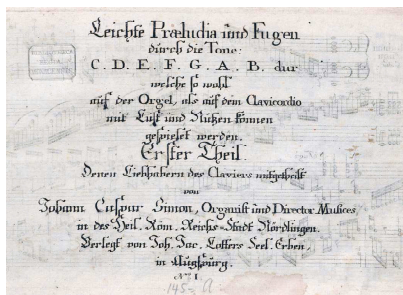 Leichte Præludia und Fugen
durch die Tone:
C. D. E. F. G. A. B. dur
welche so wohl
auf der Orgel, als auf dem Clavicordio
mit Lust und Nutzen können
gespielet werden.
Erster Theil.
Denen Liebhabern des Claviers mitgetheilt
von
Johann Caspar Simon, Organist und Director Musices,
in des Heil. Röm. Reichs-Stadt Nördlingen.
Verlegt von Joh. Jac. Lotters Seel. Erben,
in Augspurg.
No. I.